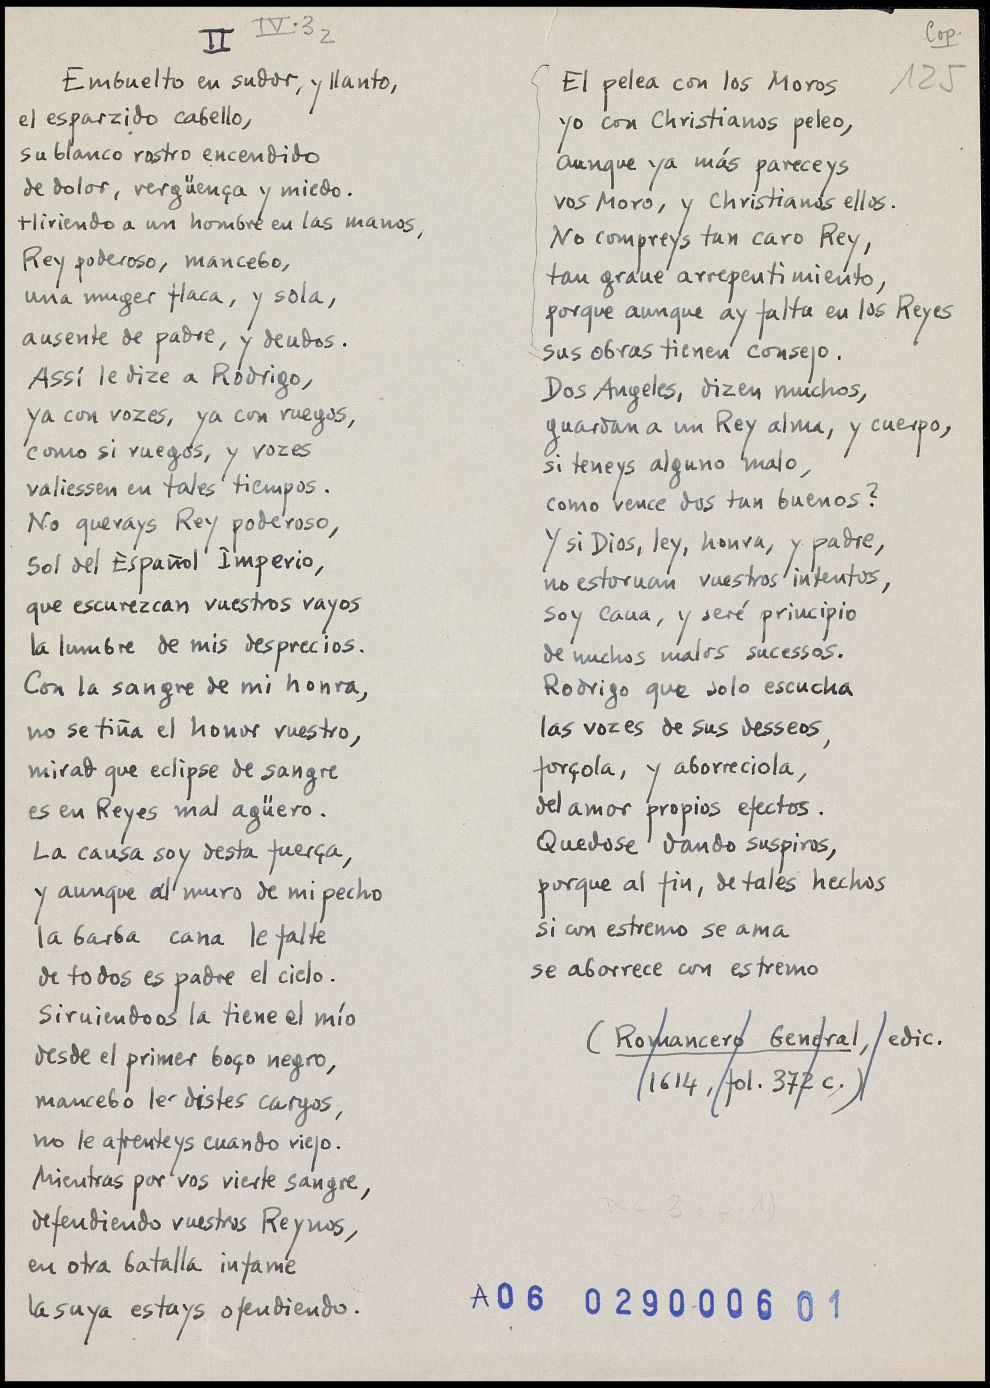 II IV.32
Cop.
125
Embuelto en sudor, y llanto,
el esparzido cabello,
su blanco rostro encendido
de dolor, vergüença y miedo.
Hiriendo a un hombre en las manos,
Rey poderoso, mancebo,
una muger flaca, y sola,
ausente de padre, y deudos.
Assí le dize a Rodrigo,
ya con vozes, ya con ruegos,
como si ruegos, y vozes
valiessen en tales tiempos.
No querays Rey poderoso,
Sol del Español Imperio,
que escurezcan vuestros rayos
la lumbre de mis desprecios.
Con la sangre de mi honra,
no se tiña el honor vuestro,
mirad que eclipse de sangre
es en Reyes mal agüero.
La causa soy desta fuerça,
y aunque al muro de mi pecho
la barba cana le falte
de todos es padre el cielo.
Siruiendoos la tiene el mío
desde el primer boço negro,
mancebo le distes cargos,
no le afrenteys cuando viejo.
Mientras por vos vierte sangre,
defendiendo vuestros Reynos,
en otra batalla infame
la suya estays ofendiendo.
El pelea con los Moros
yo con Christianos peleo,
aunque ya más pareceys
vos Moro, y Christianos ellos.
No compreys tan caro Rey,
tan graue arrepentimiento,
porque aunque ay falta en los Reyes
sus obras tienen consejo.
Dos Angeles, dizen muchos,
guardan a un Rey alma, y cuerpo,
si teneys alguno malo,
como vence dos tan buenos?
Y si Dios, ley, honra, y padre,
no estoruan vuestros intentos,
soy Caua, y seré principio
de muchos malos sucessos.
Rodrigo que solo escucha
las vozes de sus desseos,
forçola, y aborreciola,
del amor propios efectos.
Quedose dando suspiros,
porque al fin, de tales hechos
si con estremo se ama
se aborrece con estremo
(Romancero General, edic.
1614, fol. 372 c.)
A06 0290006 01